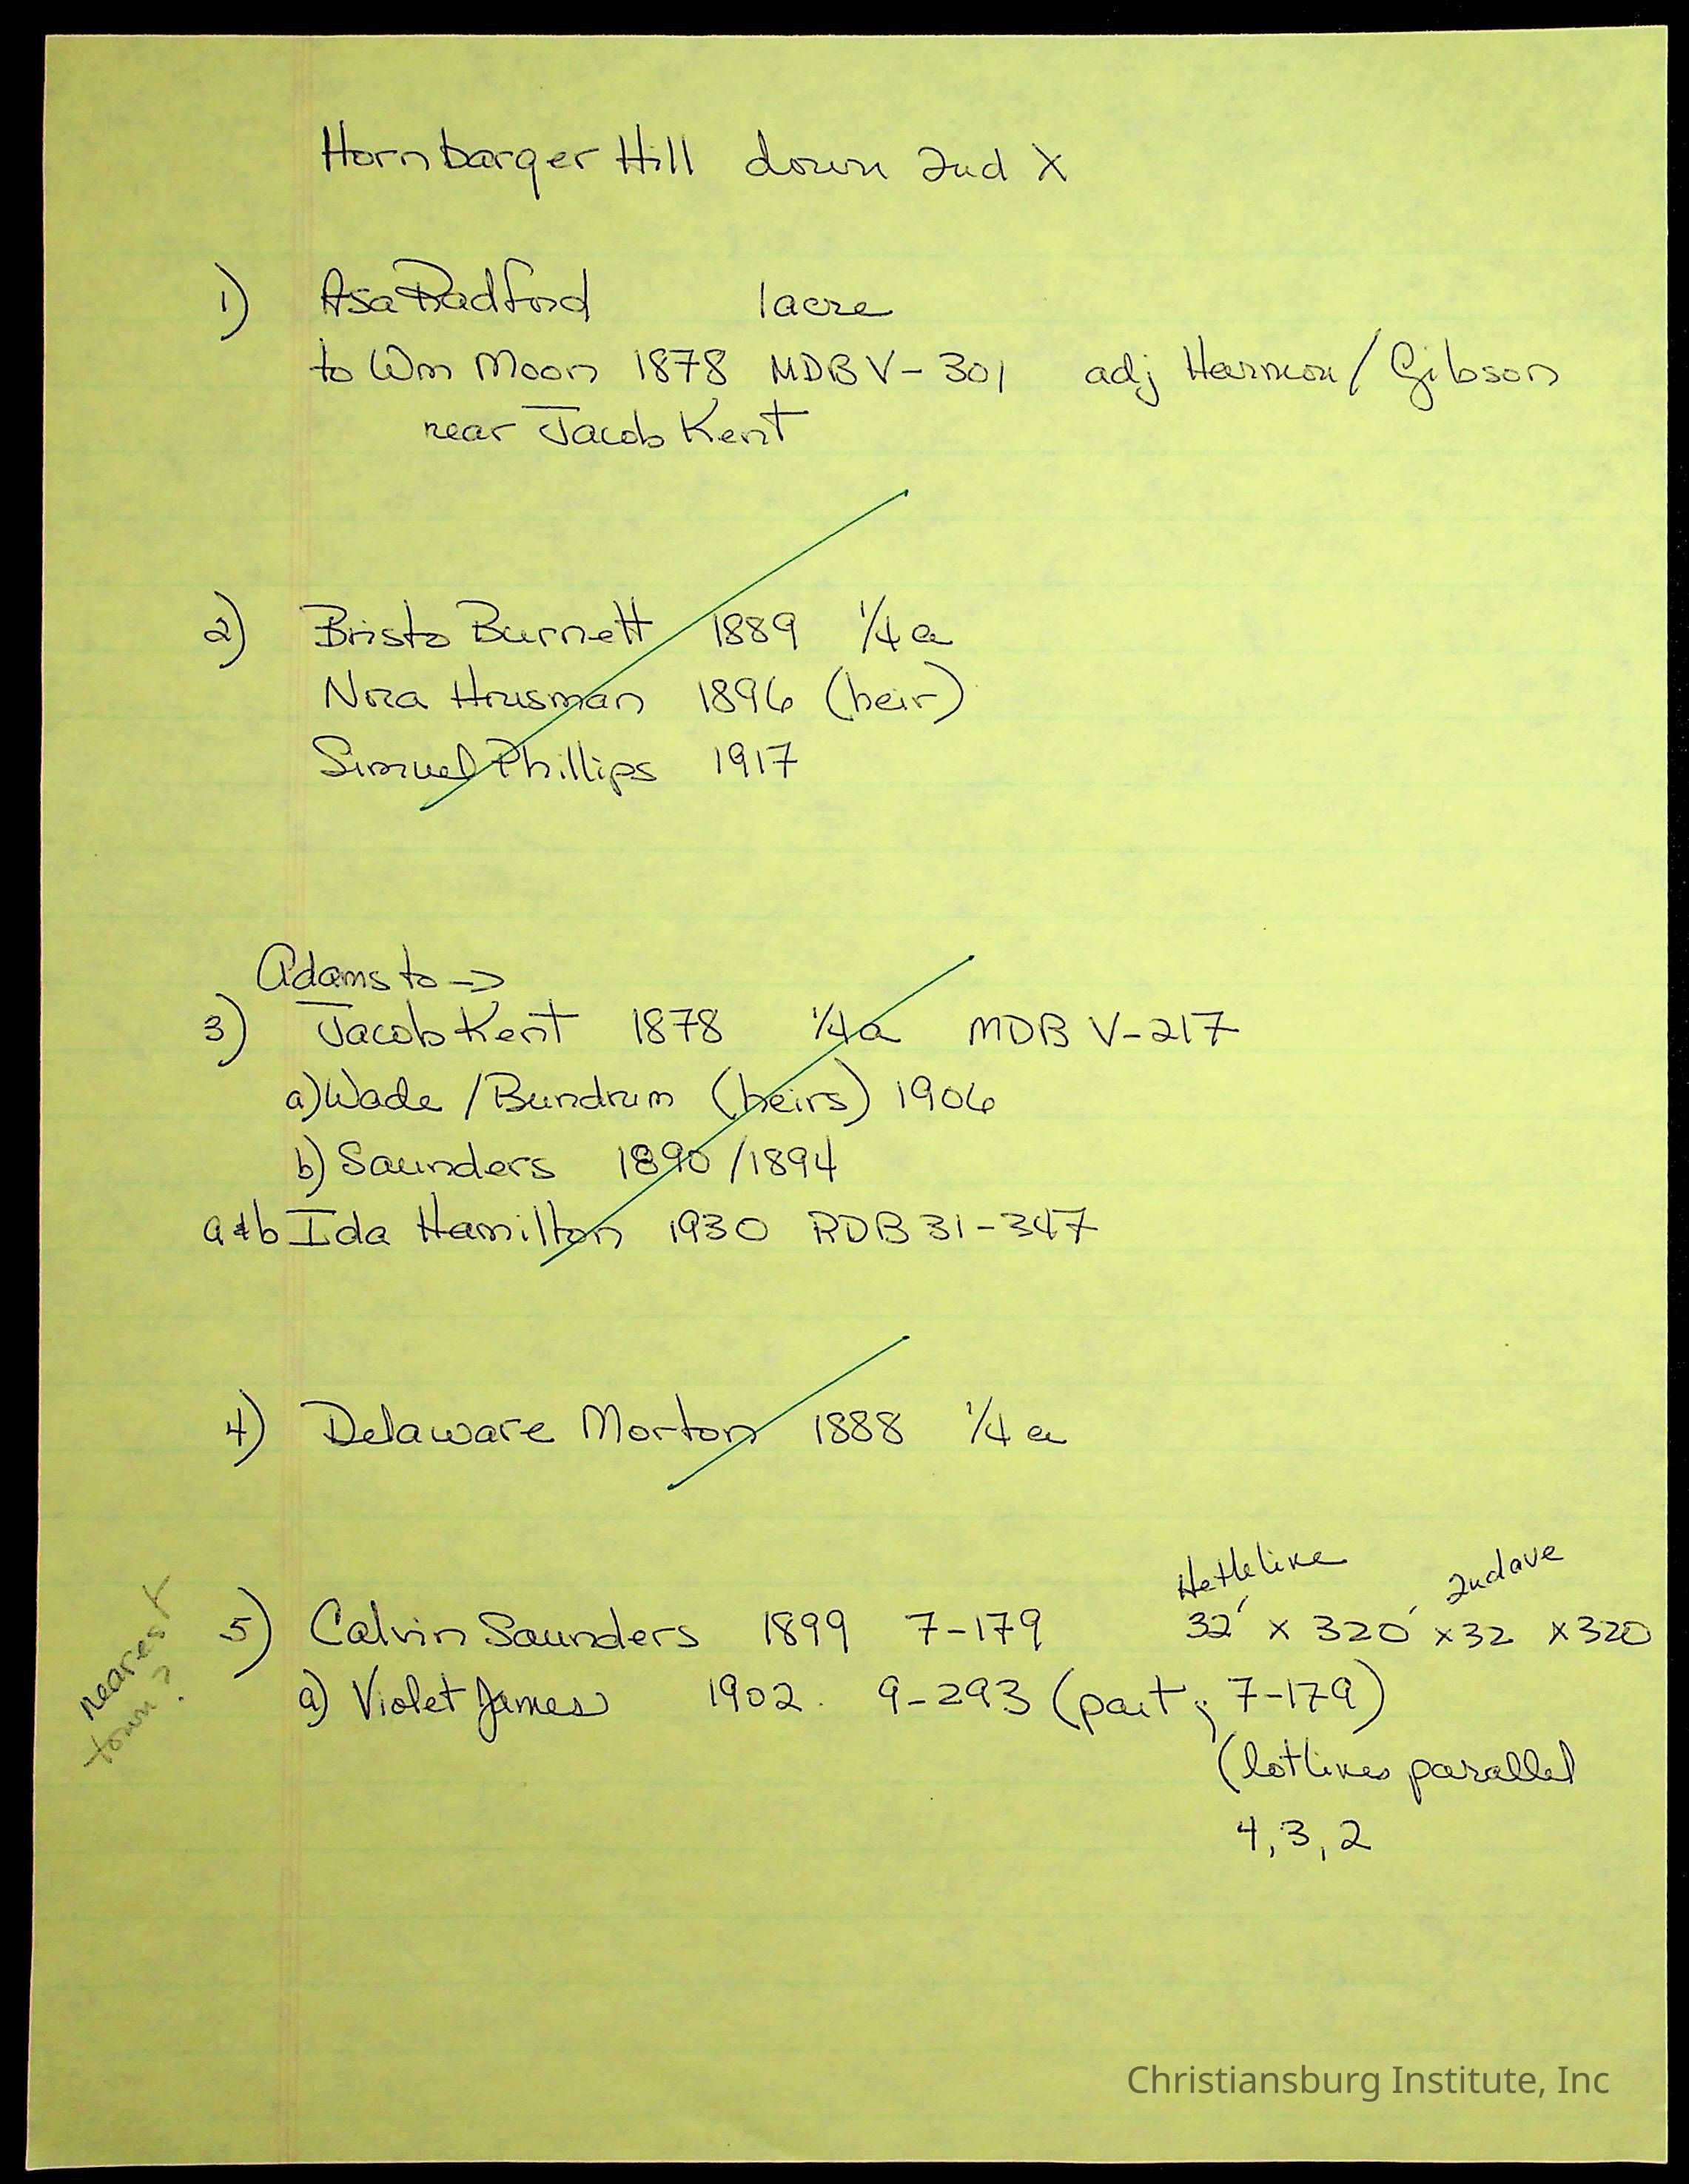 Hornbarger Hill down 2nd X
1) Asa Radford 1 acre
to Wm Moon 1878 MDB V-301 adj Harmon / Gibson
near Jacob Kent
2) Bristo Burnett 1889 1/4 a
Nora Housman 1896 (heir)
Simuel Phillips 1917
Adams to ->
3) Jacob Kent 1878 1/4 a MDB V-217
a) Wade / Bundrum (heirs) 1906
b) Saunders 1890 / 1894
a & b Ida Hamilton 1930 RDB 31-347
4) Delaware Morton 1888 1/4 a
line 2nd ave
nearest town?
5) Calvin Saunders 1899 7-179 32' x 320' x 32 x 320
a) Violet James 1902. 9-293 (part ; 7-179)
(lot lines parallel
4, 3, 2
Christiansburg Institute, Inc